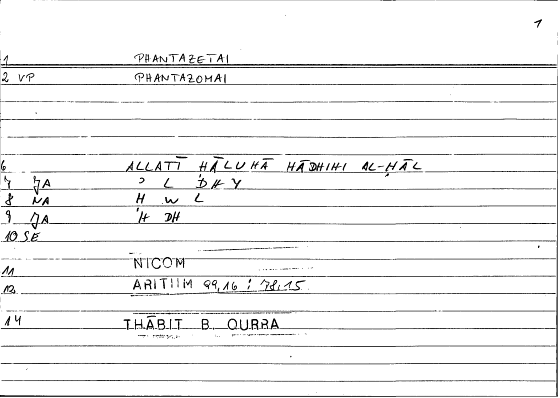 1
1 PHANTAZETAI
2 VP PHANTAZOMAI
6 ALLATĪ ḤĀLUHĀ HĀDHIHI AL-ḤĀL
7 JA ʾ L DH Y
8 NA Ḥ W L
9 JA H DH
10 SE
11 NICOM
12 ARITIIM 99,16 : 78,15
14 THĀBIT B. QURRA